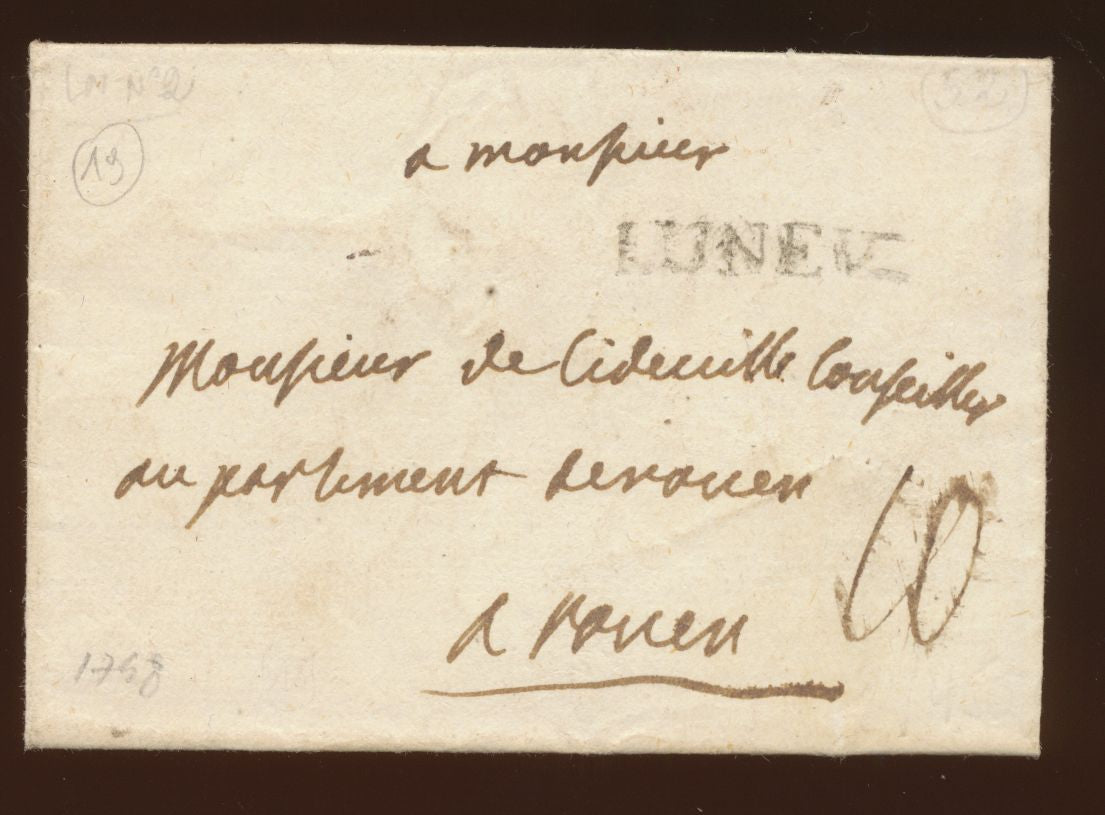 LM N°2
52
19
a monsieur
LUNEV
Monsieur de Cideville Conseiller
au parlement de rouen
10
a rouen